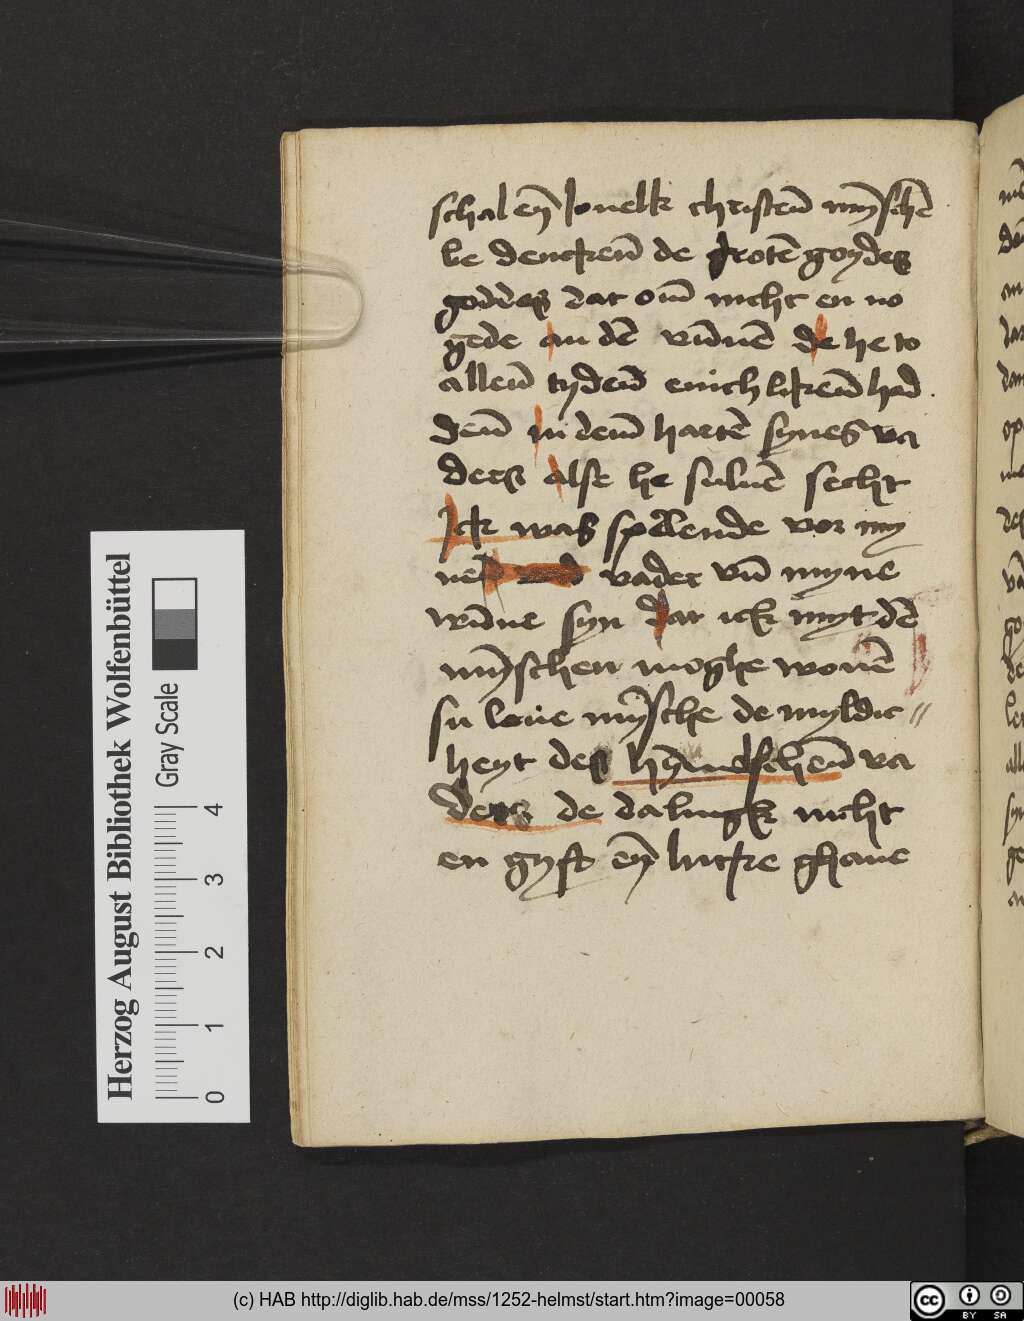 schal eyn̄ Jowelk christen̄ myn̄schē
be dencken̄ de grotē goydes
goddes dat om̄ nicht en no
gede an dē vn̄nē de he to
allen̄ tyden̄ ewich liken̄ had
den̄ in dem̄ hartē synes va
ders alse he suluē secht
Ick was spelende vor my
ne vader vn̄ myne
wn̄ne syn dat ick myt dē
myn̄schen moghe wonē
su leue myn̄sche de myldic
heyt des hym̄elschen̄ va
ders de dalingk nicht
en gyft eyn̄ lutke ghaue
Herzog August Bibliothek Wolfenbüttel
Gray Scale
0 1 2 3 4
(c) HAB http://diglib.hab.de/mss/1252-helmst/start.htm?image=00058
cc BY SA